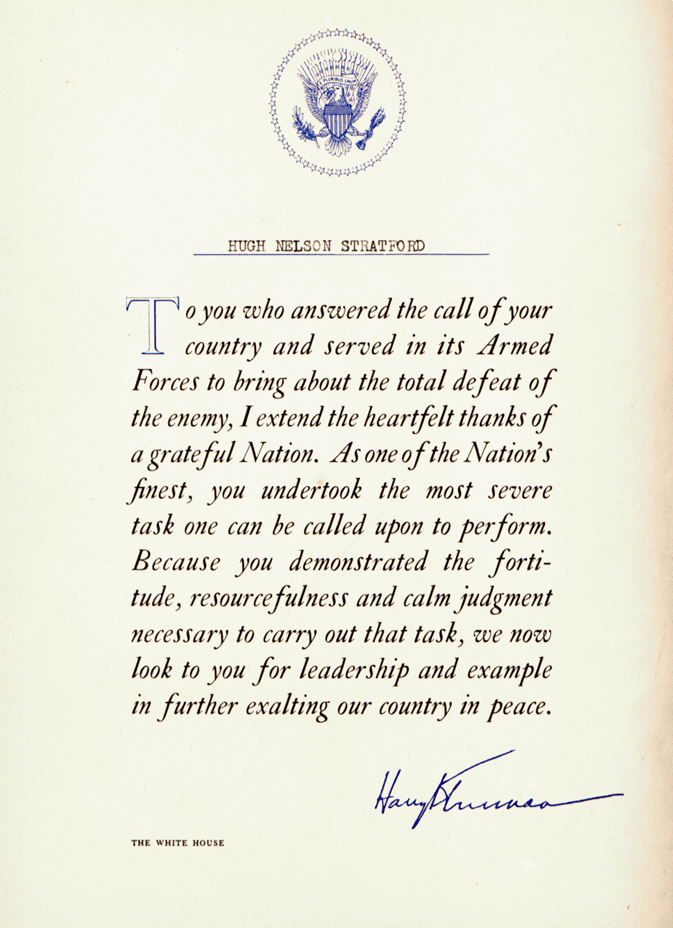 PLURIBUS UNUM
HUGH NELSON STRATFORD
To you who answered the call of your
country and served in its Armed
Forces to bring about the total defeat of
the enemy, I extend the heartfelt thanks of
a grateful Nation. As one of the Nation's
finest, you undertook the most severe
task one can be called upon to perform.
Because you demonstrated the forti-
tude, resourcefulness and calm judgment
necessary to carry out that task, we now
look to you for leadership and example
in further exalting our country in peace.
Harry S Truman
THE WHITE HOUSE